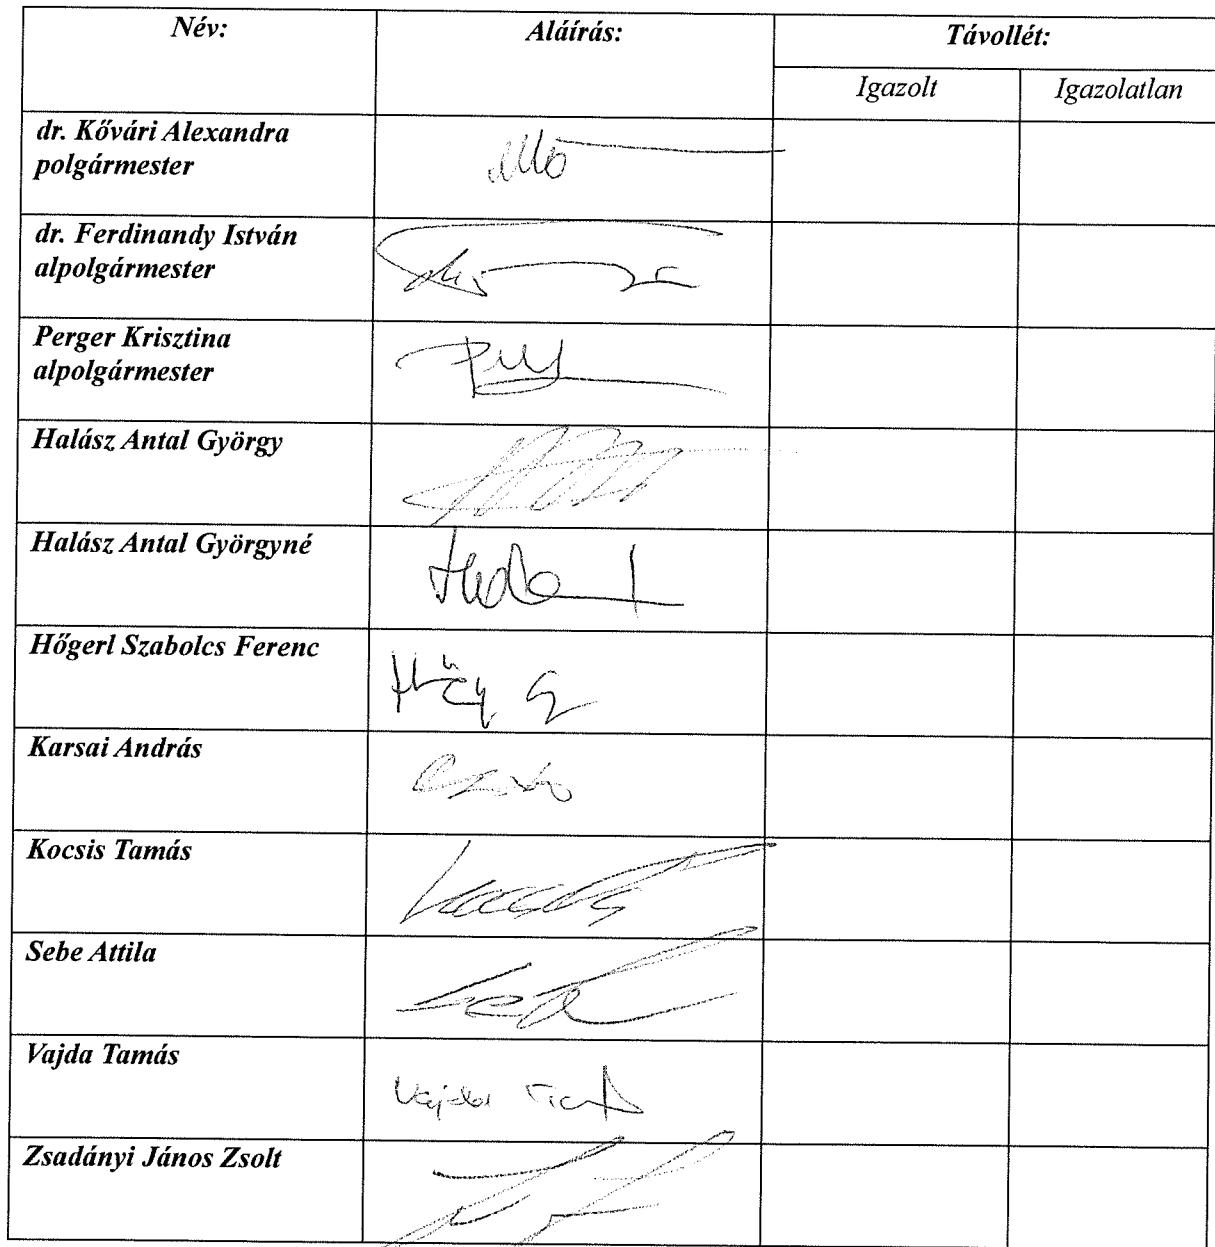 Név:
Aláírás:
Távollét:
Igazolt
Igazolatlan
dr. Kővári Alexandra
polgármester
dr. Ferdinandy István
alpolgármester
Perger Krisztina
alpolgármester
Halász Antal György
Halász Antal Györgyné
Hőgerl Szabolcs Ferenc
Karsai András
Kocsis Tamás
Sebe Attila
Vajda Tamás
Vajda
Zsadányi János Zsolt